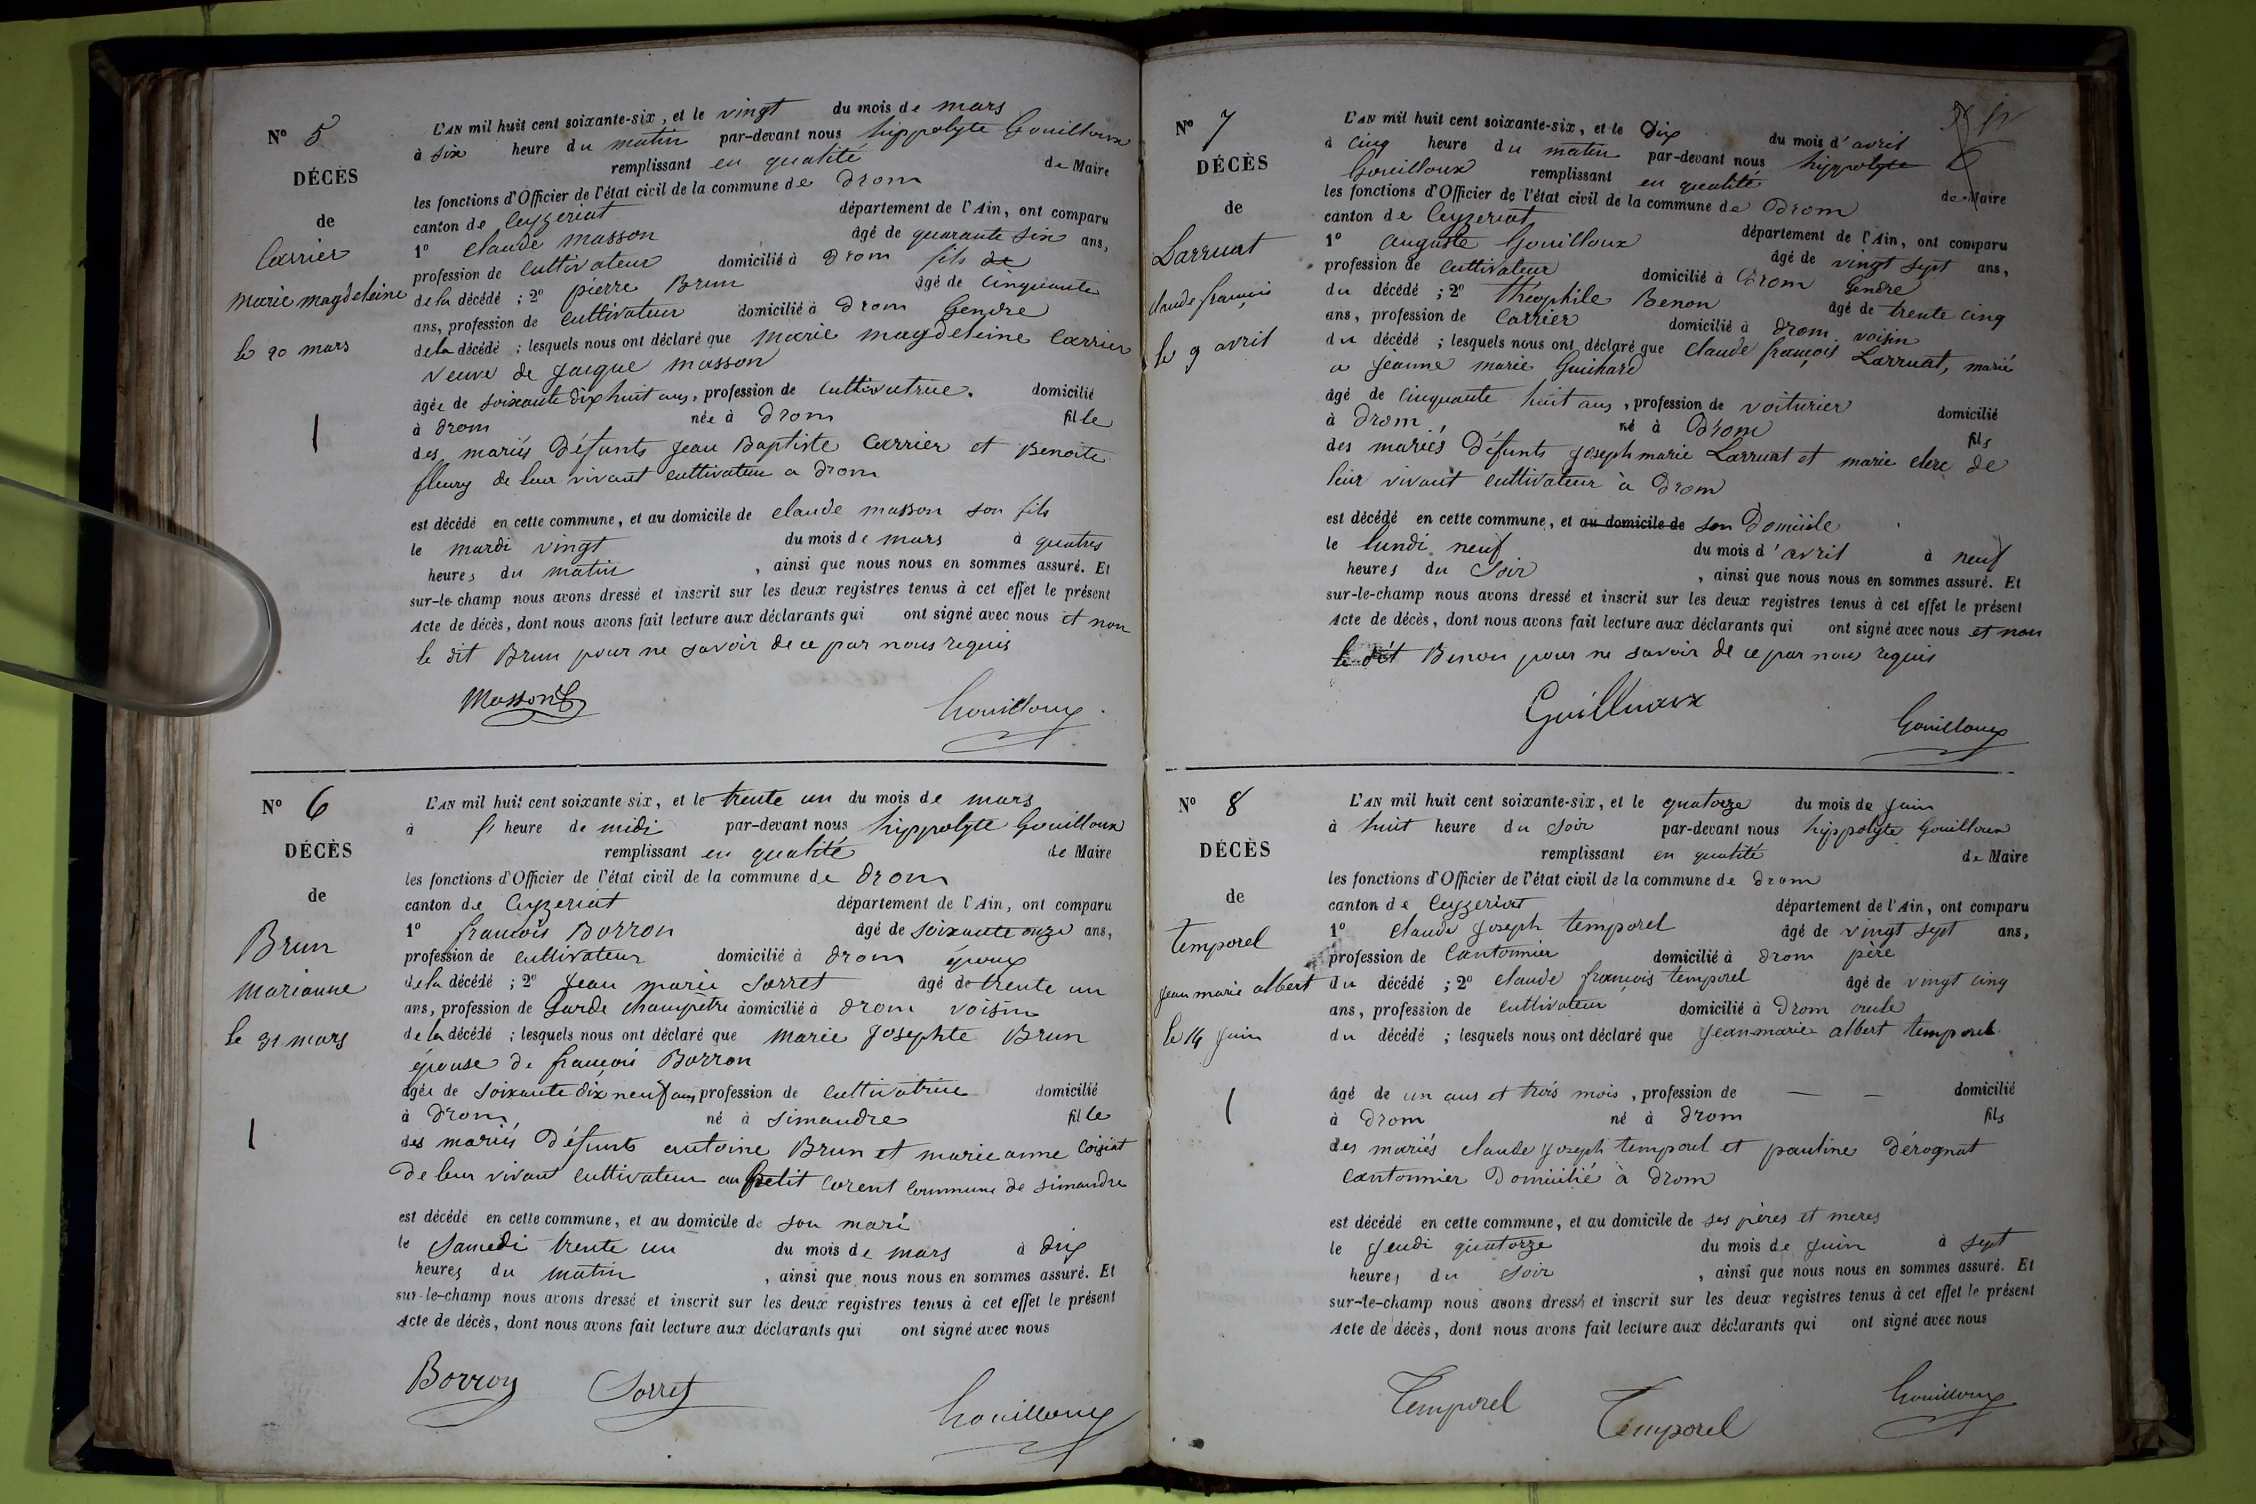 N° 5
DÉCÈS
de
Carrier
marie magdeleine
le 20 mars
1
L'AN mil huit cent soixante-six, et le vingt du mois de mars
à six heure du matin par-devant nous hippolyte Gouilloux
remplissant en qualité de Maire
les fonctions d'Officier de l'état civil de la commune de Drom
canton de Ceyzeriat département de l'Ain, ont comparu
1° claude masson âgé de quarante six ans,
profession de cultivateur domicilié à Drom fils de
de la décédé ; 2° pierre Brun âgé de cinquante
ans, profession de cultivateur domicilié à Drom Gendre
de la décédé ; lesquels nous ont déclaré que marie magdeleine Carrier
veuve de jacque masson
âgée de soixante dix huit ans, profession de cultivatrice. domicilié
à Drom née à Drom fille
des mariés Défunts jean Baptiste Carrier et Benoite
fleury de leur vivant cultivateur a Drom
est décédé en cette commune, et au domicile de claude masson son fils
le mardi vingt du mois de mars à quatres
heures du matin , ainsi que nous nous en sommes assuré. Et
sur-le-champ nous avons dressé et inscrit sur les deux registres tenus à cet effet le présent
Acte de décès, dont nous avons fait lecture aux déclarants qui ont signé avec nous et non
le dit Brun pour ne savoir de ce par nous requis
Masson C Gouilloux
N° 6
DÉCÈS
de
Brun
marianne
le 31 mars
1
L'AN mil huit cent soixante six, et le trente un du mois de mars
à heure de midi par-devant nous hippolyte Gouilloux
remplissant en qualité de Maire
les fonctions d'Officier de l'état civil de la commune de Drom
canton de Ceyzeriat département de l'Ain, ont comparu
1° francois Borron âgé de soixante onze ans,
profession de cultivateur domicilié à Drom époux
de la décédé ; 2° Jean marie Sorret âgé de trente un
ans, profession de Garde champetre domicilié à Drom voisin
de la décédé ; lesquels nous ont déclaré que marie Josephte Brun
épouse de francois Borron
âgée de soixante dix neuf ans, profession de cultivatrice domicilié
à Drom né à Simandre fille
des mariés Défunts antoine Brun et marie anne Coiziat
de leur vivant cultivateur au petit Corent Commune de Simandre
est décédé en cette commune, et au domicile de son mari
le Samedi trente un du mois de mars à dix
heures du matin , ainsi que nous nous en sommes assuré. Et
sur-le-champ nous avons dressé et inscrit sur les deux registres tenus à cet effet le présent
Acte de décès, dont nous avons fait lecture aux déclarants qui ont signé avec nous
Borron Sorret Gouilloux
N° 7
DÉCÈS
de
Larruat
claude françois
le 9 avril
L'AN mil huit cent soixante-six, et le Dix du mois d'avril
à cinq heure du matin par-devant nous hippolyte
Gouilloux remplissant en qualité de Maire
les fonctions d'Officier de l'état civil de la commune de Drom
canton de Ceyzeriat département de l'Ain, ont comparu
1° auguste Gouilloux âgé de vingt sept ans,
profession de cultivateur domicilié à Drom Gendre
du décédé ; 2° théophile Benon âgé de trente cinq
ans, profession de Carrier domicilié à Drom voisin
du décédé ; lesquels nous ont déclaré que claude françois Larruat, marié
a jeanne marie Guichard
âgé de cinquante huit ans, profession de voiturier domicilié
à Drom né à Drom fils
des mariés Défunts joseph marie Larruat et marie clerc de
leur vivant cultivateur à Drom
est décédé en cette commune, et au domicile de son Domicile
le lundi neuf du mois d'avril à neuf
heures du Soir , ainsi que nous nous en sommes assuré. Et
sur-le-champ nous avons dressé et inscrit sur les deux registres tenus à cet effet le présent
Acte de décès, dont nous avons fait lecture aux déclarants qui ont signé avec nous et non
le dit Benon pour ne savoir de ce par nous requis
Guilluoux Gouilloux
N° 8
DÉCÈS
de
temporel
jean marie albert
le 14 juin
1
L'AN mil huit cent soixante-six, et le quatorze du mois de juin
à huit heure du soir par-devant nous hippolyte Gouilloux
remplissant en qualité de Maire
les fonctions d'Officier de l'état civil de la commune de Drom
canton de Ceyzeriat département de l'Ain, ont comparu
1° claude joseph temporel âgé de vingt sept ans,
profession de Cantonnier domicilié à Drom père
du décédé ; 2° claude françois temporel âgé de vingt cinq
ans, profession de cultivateur domicilié à Drom oncle
du décédé ; lesquels nous ont déclaré que jean-marie albert temporel
âgé de un ans et trois mois, profession de — — domicilié
à Drom né à Drom fils
des mariés claude joseph temporel et pauline Dérognat
cantonnier Domicilié à Drom
est décédé en cette commune, et au domicile de ses pères et meres
le jeudi quatorze du mois de juin à sept
heures du soir , ainsi que nous nous en sommes assuré. Et
sur-le-champ nous avons dressé et inscrit sur les deux registres tenus à cet effet le présent
Acte de décès, dont nous avons fait lecture aux déclarants qui ont signé avec nous
Temporel Temporel Gouilloux